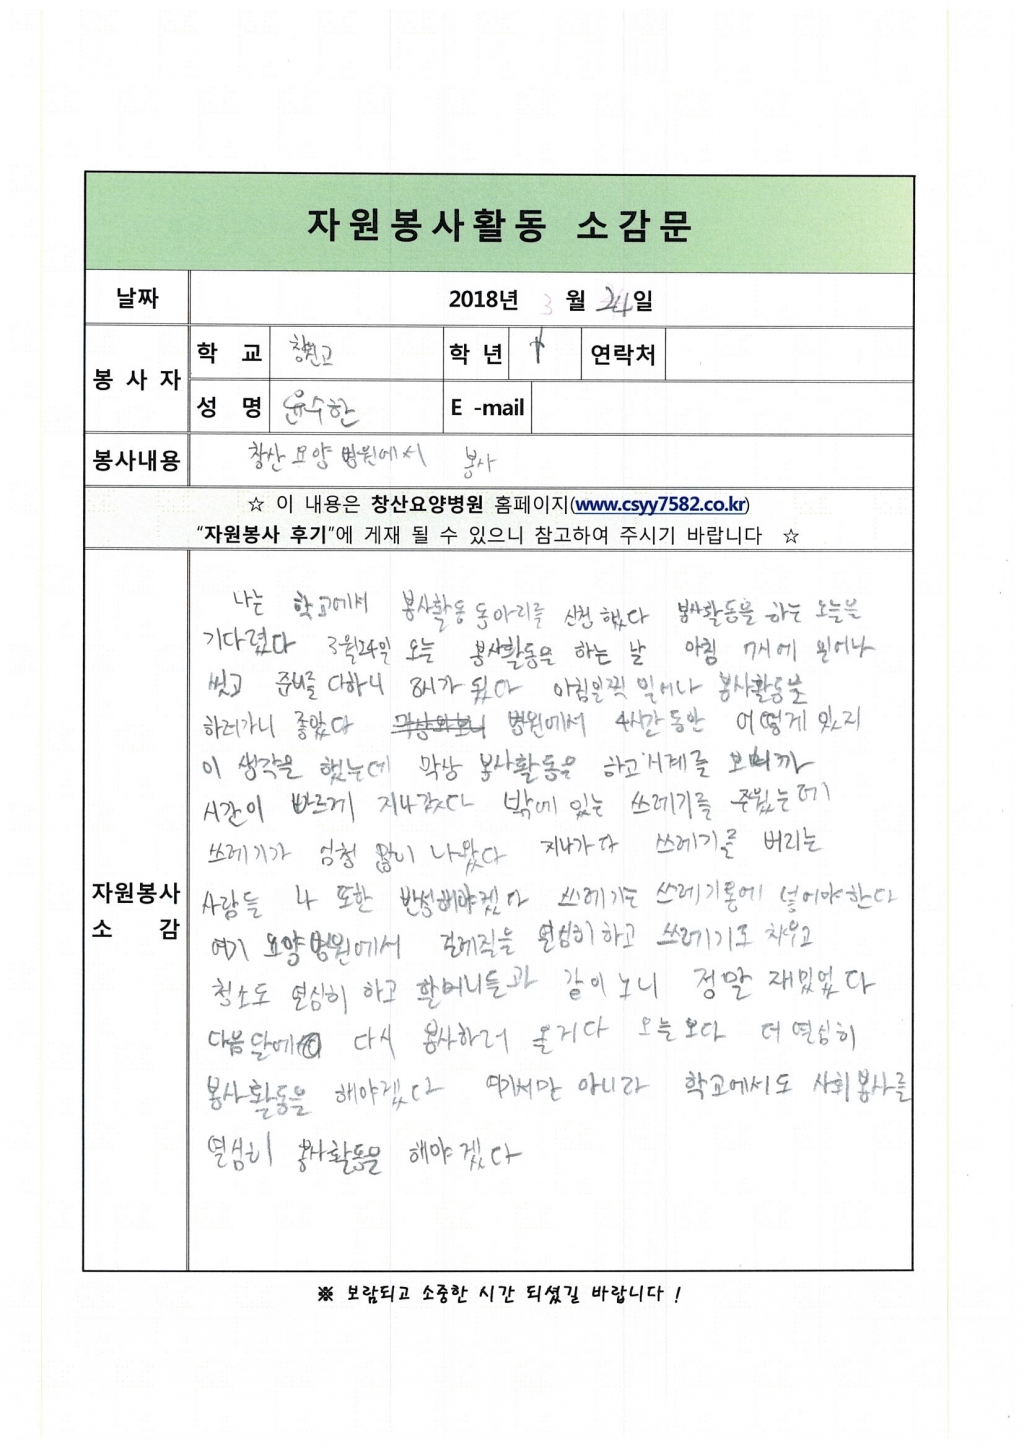 자원봉사활동 소감문
날짜
2018년 3 월 24일
봉 사 자
학 교 창원고 학 년 1 연락처
성 명 윤수한 E -mail
봉사내용 창산요양병원에서 봉사
☆ 이 내용은 창산요양병원 홈페이지(www.csyy7582.co.kr)
“자원봉사 후기”에 게재 될 수 있으니 참고하여 주시기 바랍니다 ☆
자원봉사
소 감
나는 학교에서 봉사활동 동아리를 신청 했다 봉사활동을 하는 오늘을
기다렸다 3월24일 오늘 봉사활동을 하는 날 아침 7시에 일어나
씻고 준비를 다하니 8시가 됬다 아침일찍 일어나 봉사활동을
하러가니 좋았다 막상와보니 병원에서 4시간동안 어떻게 있지
이 생각을 했는데 막상 봉사활동을 하고 시계를 보니까
시간이 빠르게 지나갔다 밖에 있는 쓰레기를 주웠는데
쓰레기가 엄청 많이 나왔다 지나가다 쓰레기를 버리는
사람들 나 또한 반성해야겠다 쓰레기는 쓰레기통에 넣어야한다
여기 요양병원에서 걸레질을 열심히하고 쓰레기도 치우고
청소도 열심히 하고 할머니들과 같이 노니 정말 재밌었다
다음달에 다시 봉사하러 올거다 오늘보다 더 열심히
봉사활동을 해야겠다 여기서만 아니라 학교에서도 사회봉사를
열심히 봉사활동을 해야겠다
※ 보람되고 소중한 시간 되셨길 바랍니다 !